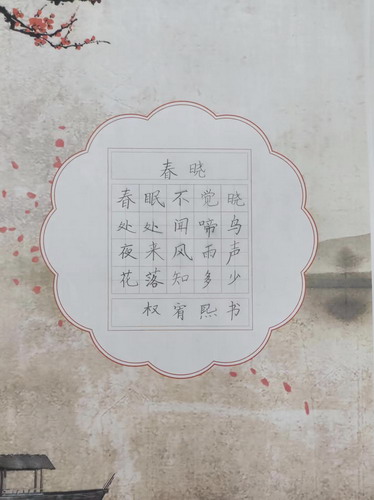 春晓
春眠不觉晓
处处闻啼鸟
夜来风雨声
花落知多少
权宥熙书